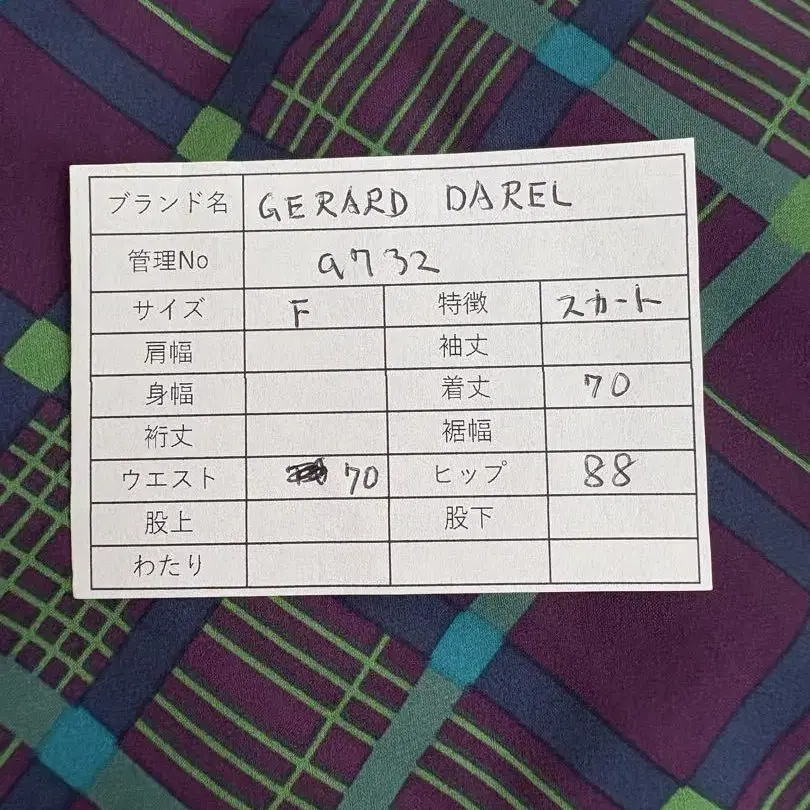 ブランド名 GERARD DAREL
管理No a732
サイズ F 特徴 スカート
肩幅 袖丈
身幅 着丈 70
裄丈 裾幅
ウエスト 70 ヒップ 88
股上 股下
わたり